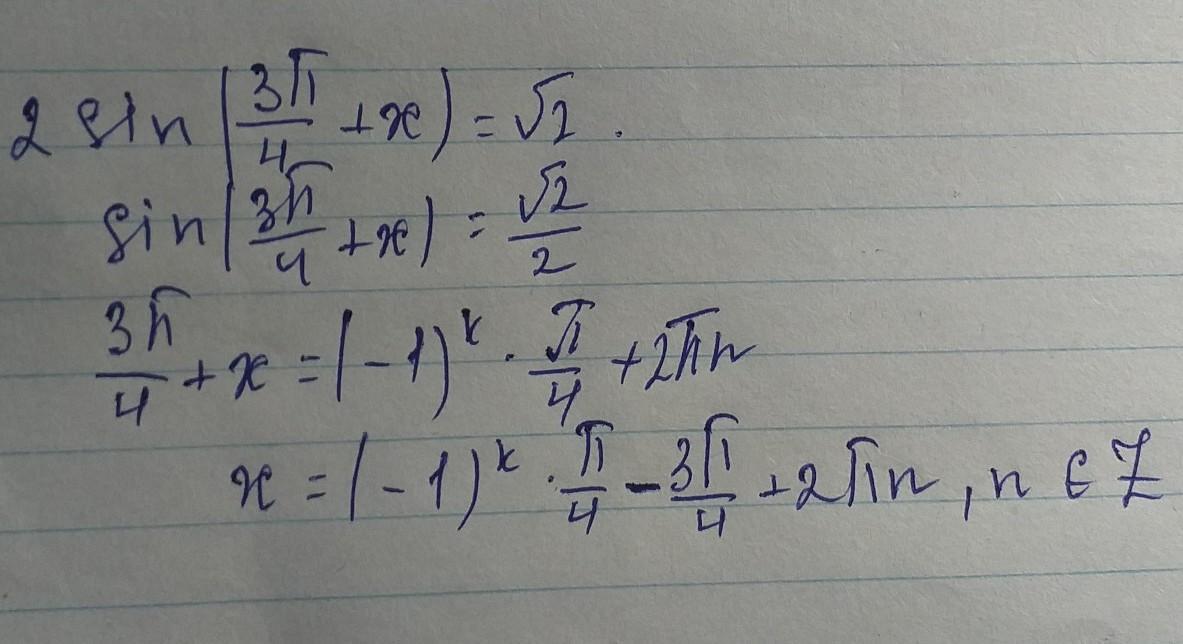 2 sin(3π/4 + x) = √2.
sin(3π/4 + x) = √2/2
3π/4 + x = (-1)^k · π/4 + 2πn
x = (-1)^k · π/4 - 3π/4 + 2πn, n ∈ Z